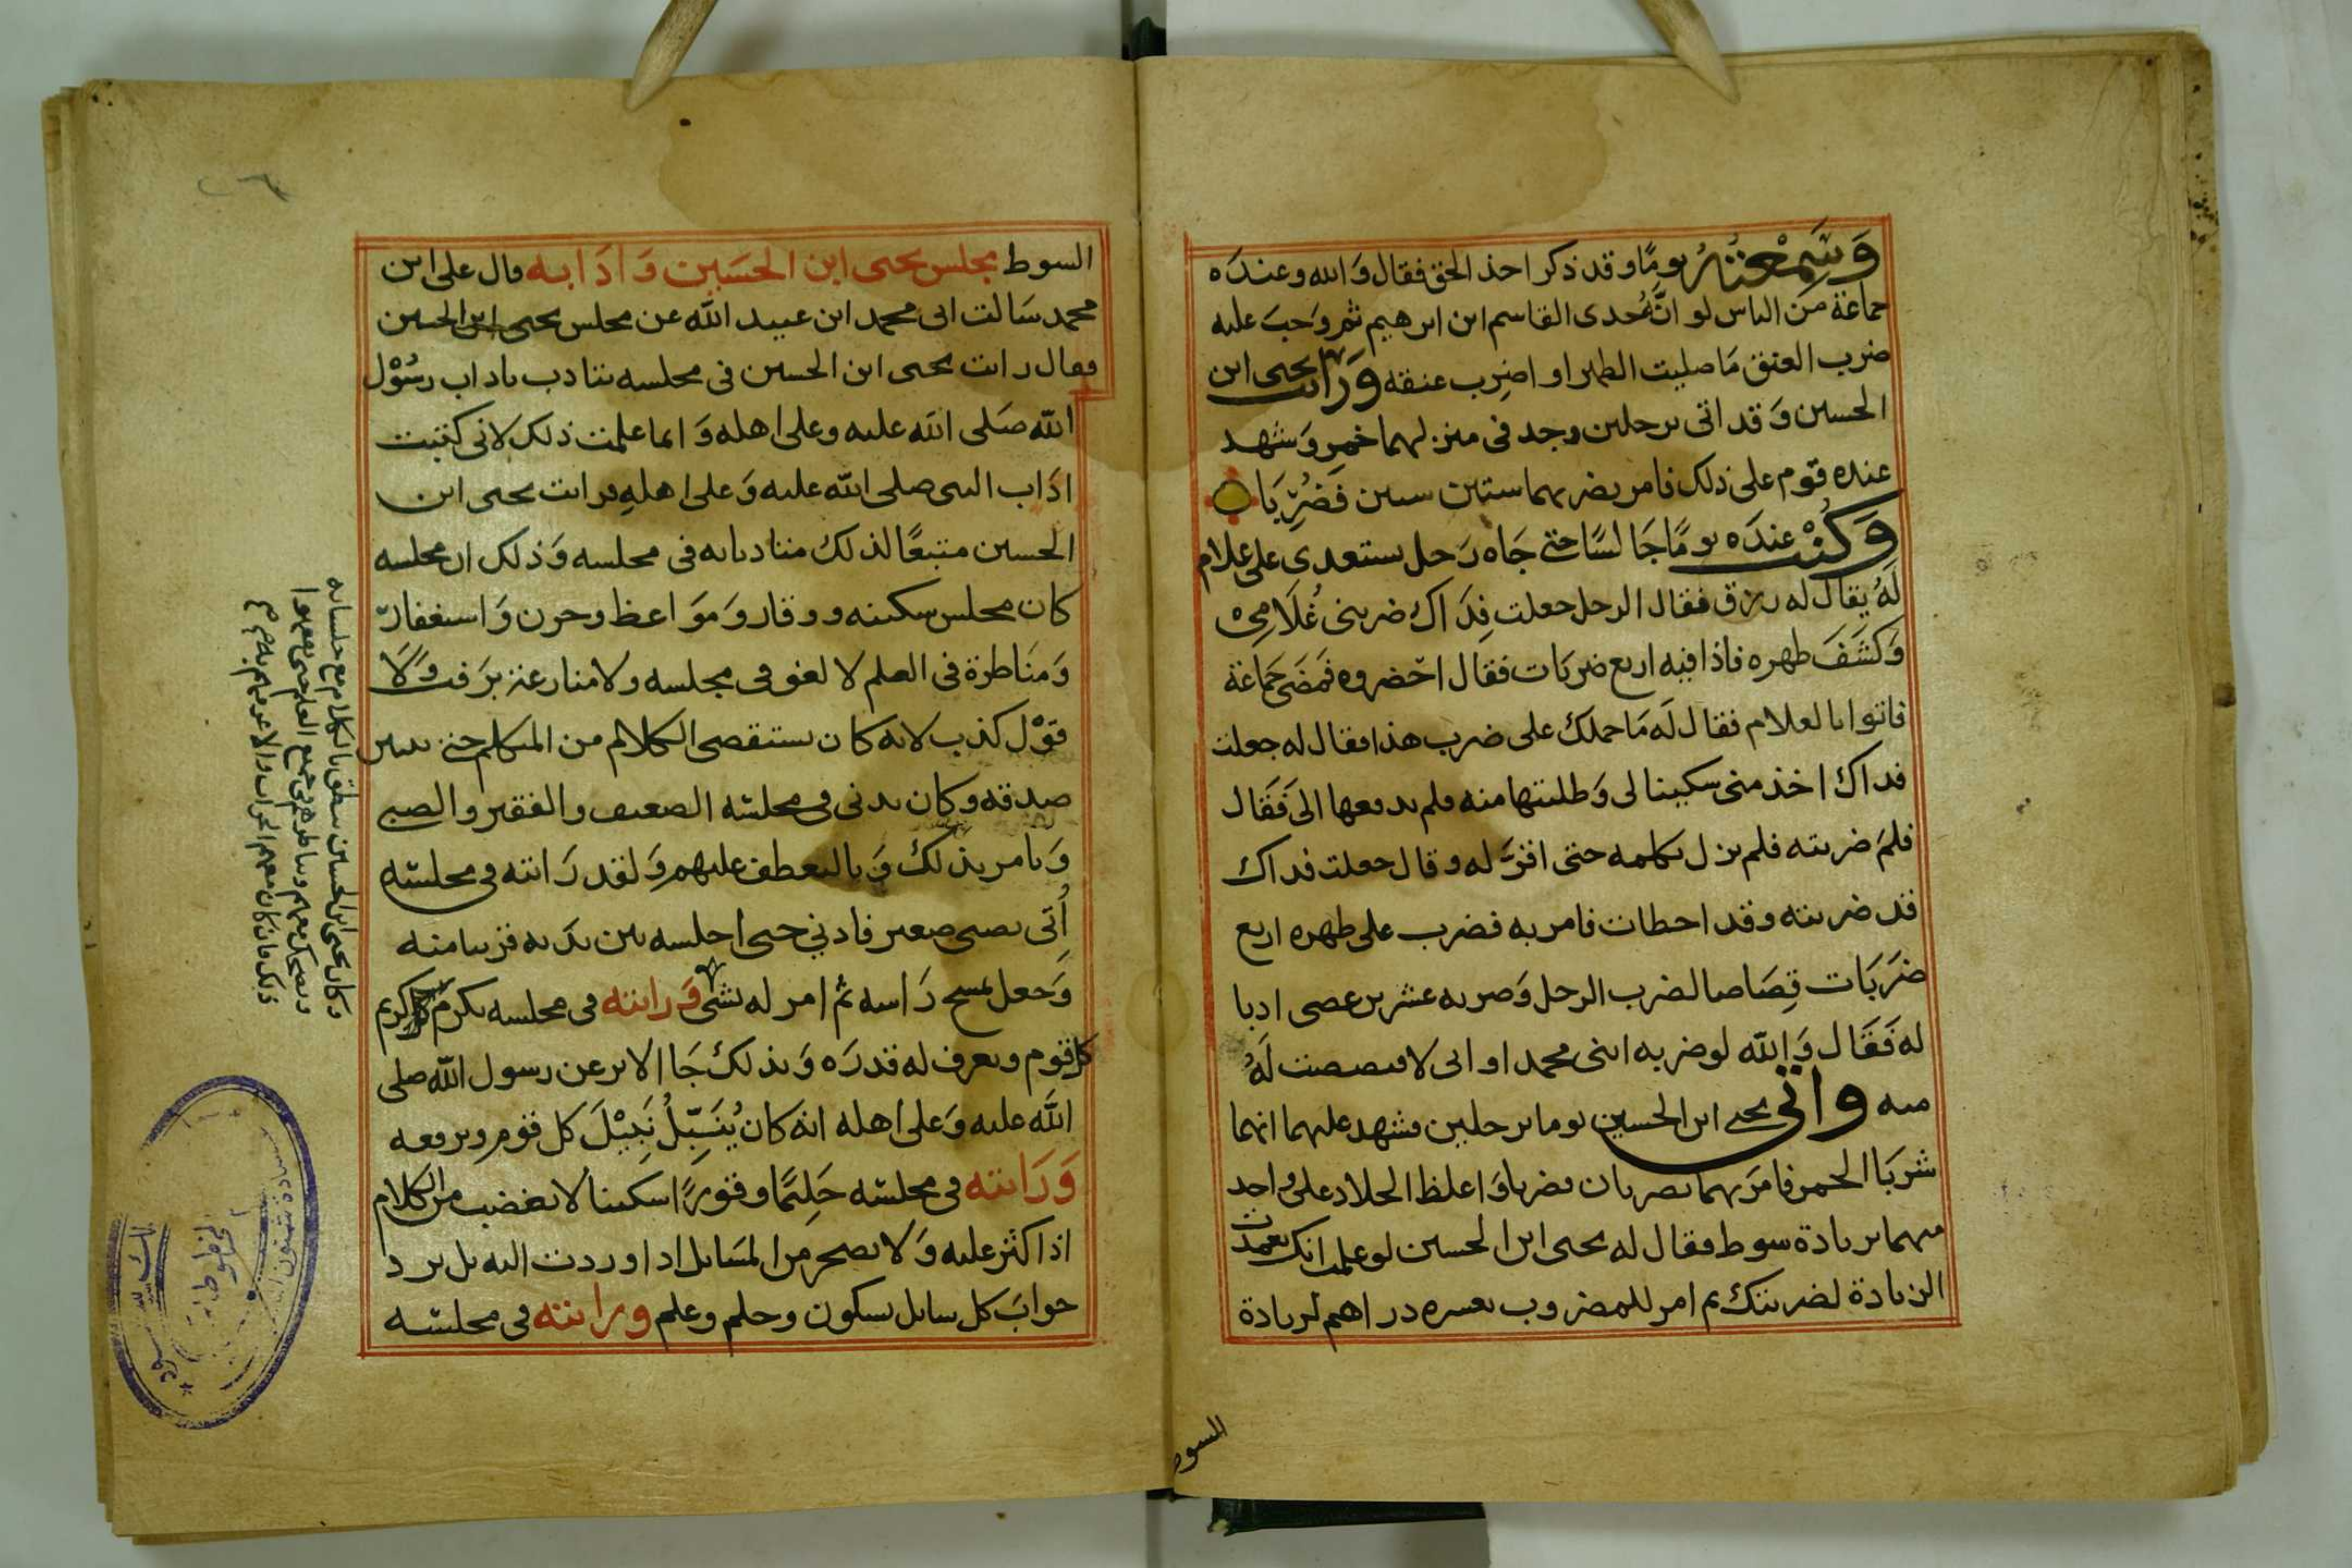 وَسَمِعْتُهُ يومًا وقد ذكر اخذ الحق فقال وَالله وعندَه
جماعَة مَن الناس لو انَّ جُدى القاسم ابن ابرهيم ثم وَجبَ عليه
ضرب العنق مَا صليت الظهر او اضرِب عنقه وَرَايت يحيى ابن
الحسين وَقد اتى برجلين وجد فى منزلهما خمر وَشهد
عنده قوم على ذلك فامر بضربهما ستين ستين فَضُرِّبَا
وَكُنْت عندَه يومًا جَالسًا حتى جَاه رَجل يستعدى على غلام
لَهُ يقال له رزق فقال الرجل جعلت فِدَاك ضربنى غُلَامِى
وَكشَفَ ظهره فاذا فيه اربع ضربَات فقال احضروه فَمضَى جَماعَة
فاتوا بالغلام فقال لَه مَا حملك على ضرب هذا فقال له جعلت
فداك اخذ منى سكينا لى وَطلبتها منه فلم يدفعها الىَّ فَقَال
فلمَ ضربته فلم يزل يكلمه حتى اقرَّ له وقال جعلت فداك
قد ضربته وقد اخطات فامر به فضرب على ظهره اربع
ضرَبَات قِصَاصا لضرب الرجل وَضربه عشر بن عصى ادبا
له فَقَال وَالله لو ضربه ابنى محمد او ابى لاقتصصت لَهُ
منه واتى يحيى ابن الحسين يوما برجلين فشهد عليهما انهما
شربَا الخمر فامَر بهما يضربان فضربا وَاغلظ الجلاد على واحد
منهما بزيادة سوط فقال له يحيى ابن الحسين لو علمت انك تعمدت
الزيادة لضربتك ثم امر للمضروب بعشره دراهم لزيادة
السوط
السوط مجلس يحيى ابن الحسَين وَادَابه قال على ابن
محمد سَالت ابى محمد ابن عبيد الله عن مجلس يحيى ابن الحسين
فقال رايت يحيى ابن الحسين فى مجلسه يتادب باداب رسُوْل
الله صَلى الله عليه وعلى اهله وَانما علمت ذلك لانى كتبت
ادَاب النبى صلى الله عليه وَعلى اهلهِ فرايت يحيى ابن
الحسين متبعًا لذلك متادبا به فى مجلسه وَذلك ان مجلسه
كان مجلس سكينه ووقار وَموَاعظ وحزن وَاستغفار
وَمنَاظرة فى العلم لا لغو فى مجلسه ولا منازعة برَفث وَلَا
قوْل كذب لانه كان يستقصى الكلام من المتكلم حتى يتبين
صدقه وكان يدنى فى مجلسه الضعيف والفقير والصبى
وَيامر بذلك وَبالتعطف عليهم وَلقد رَايته فى مجلسه
أُتى بصبى صغير فادني حتى اجلسه بين يدَيه قريبا منه
وَجعل يمسح رَاسه ثم امر له بشى وَرايته فى مجلسه يكرم كريم
كل قوم ويعرف له قدرَه وَبذلك جَا الاثر عن رسول الله صلى
الله عليه وَعلى اهله انه كان يُنَبِّلُ نَبِيْلَ كل قوم ويرفعه
وَرَايته فى مجلسه حَليمًا وقورًا سكينا لا يغضب من الكلام
اذا كثر عليه وَلا يضجر من المسَايل اذا وردت اليه بل يرد
جوابَ كل سايل بسكون وحلم وعلم ورايته فى مجلسه
وكان يحيى ابن الحسين ينطق بالكلام مع جلسائه